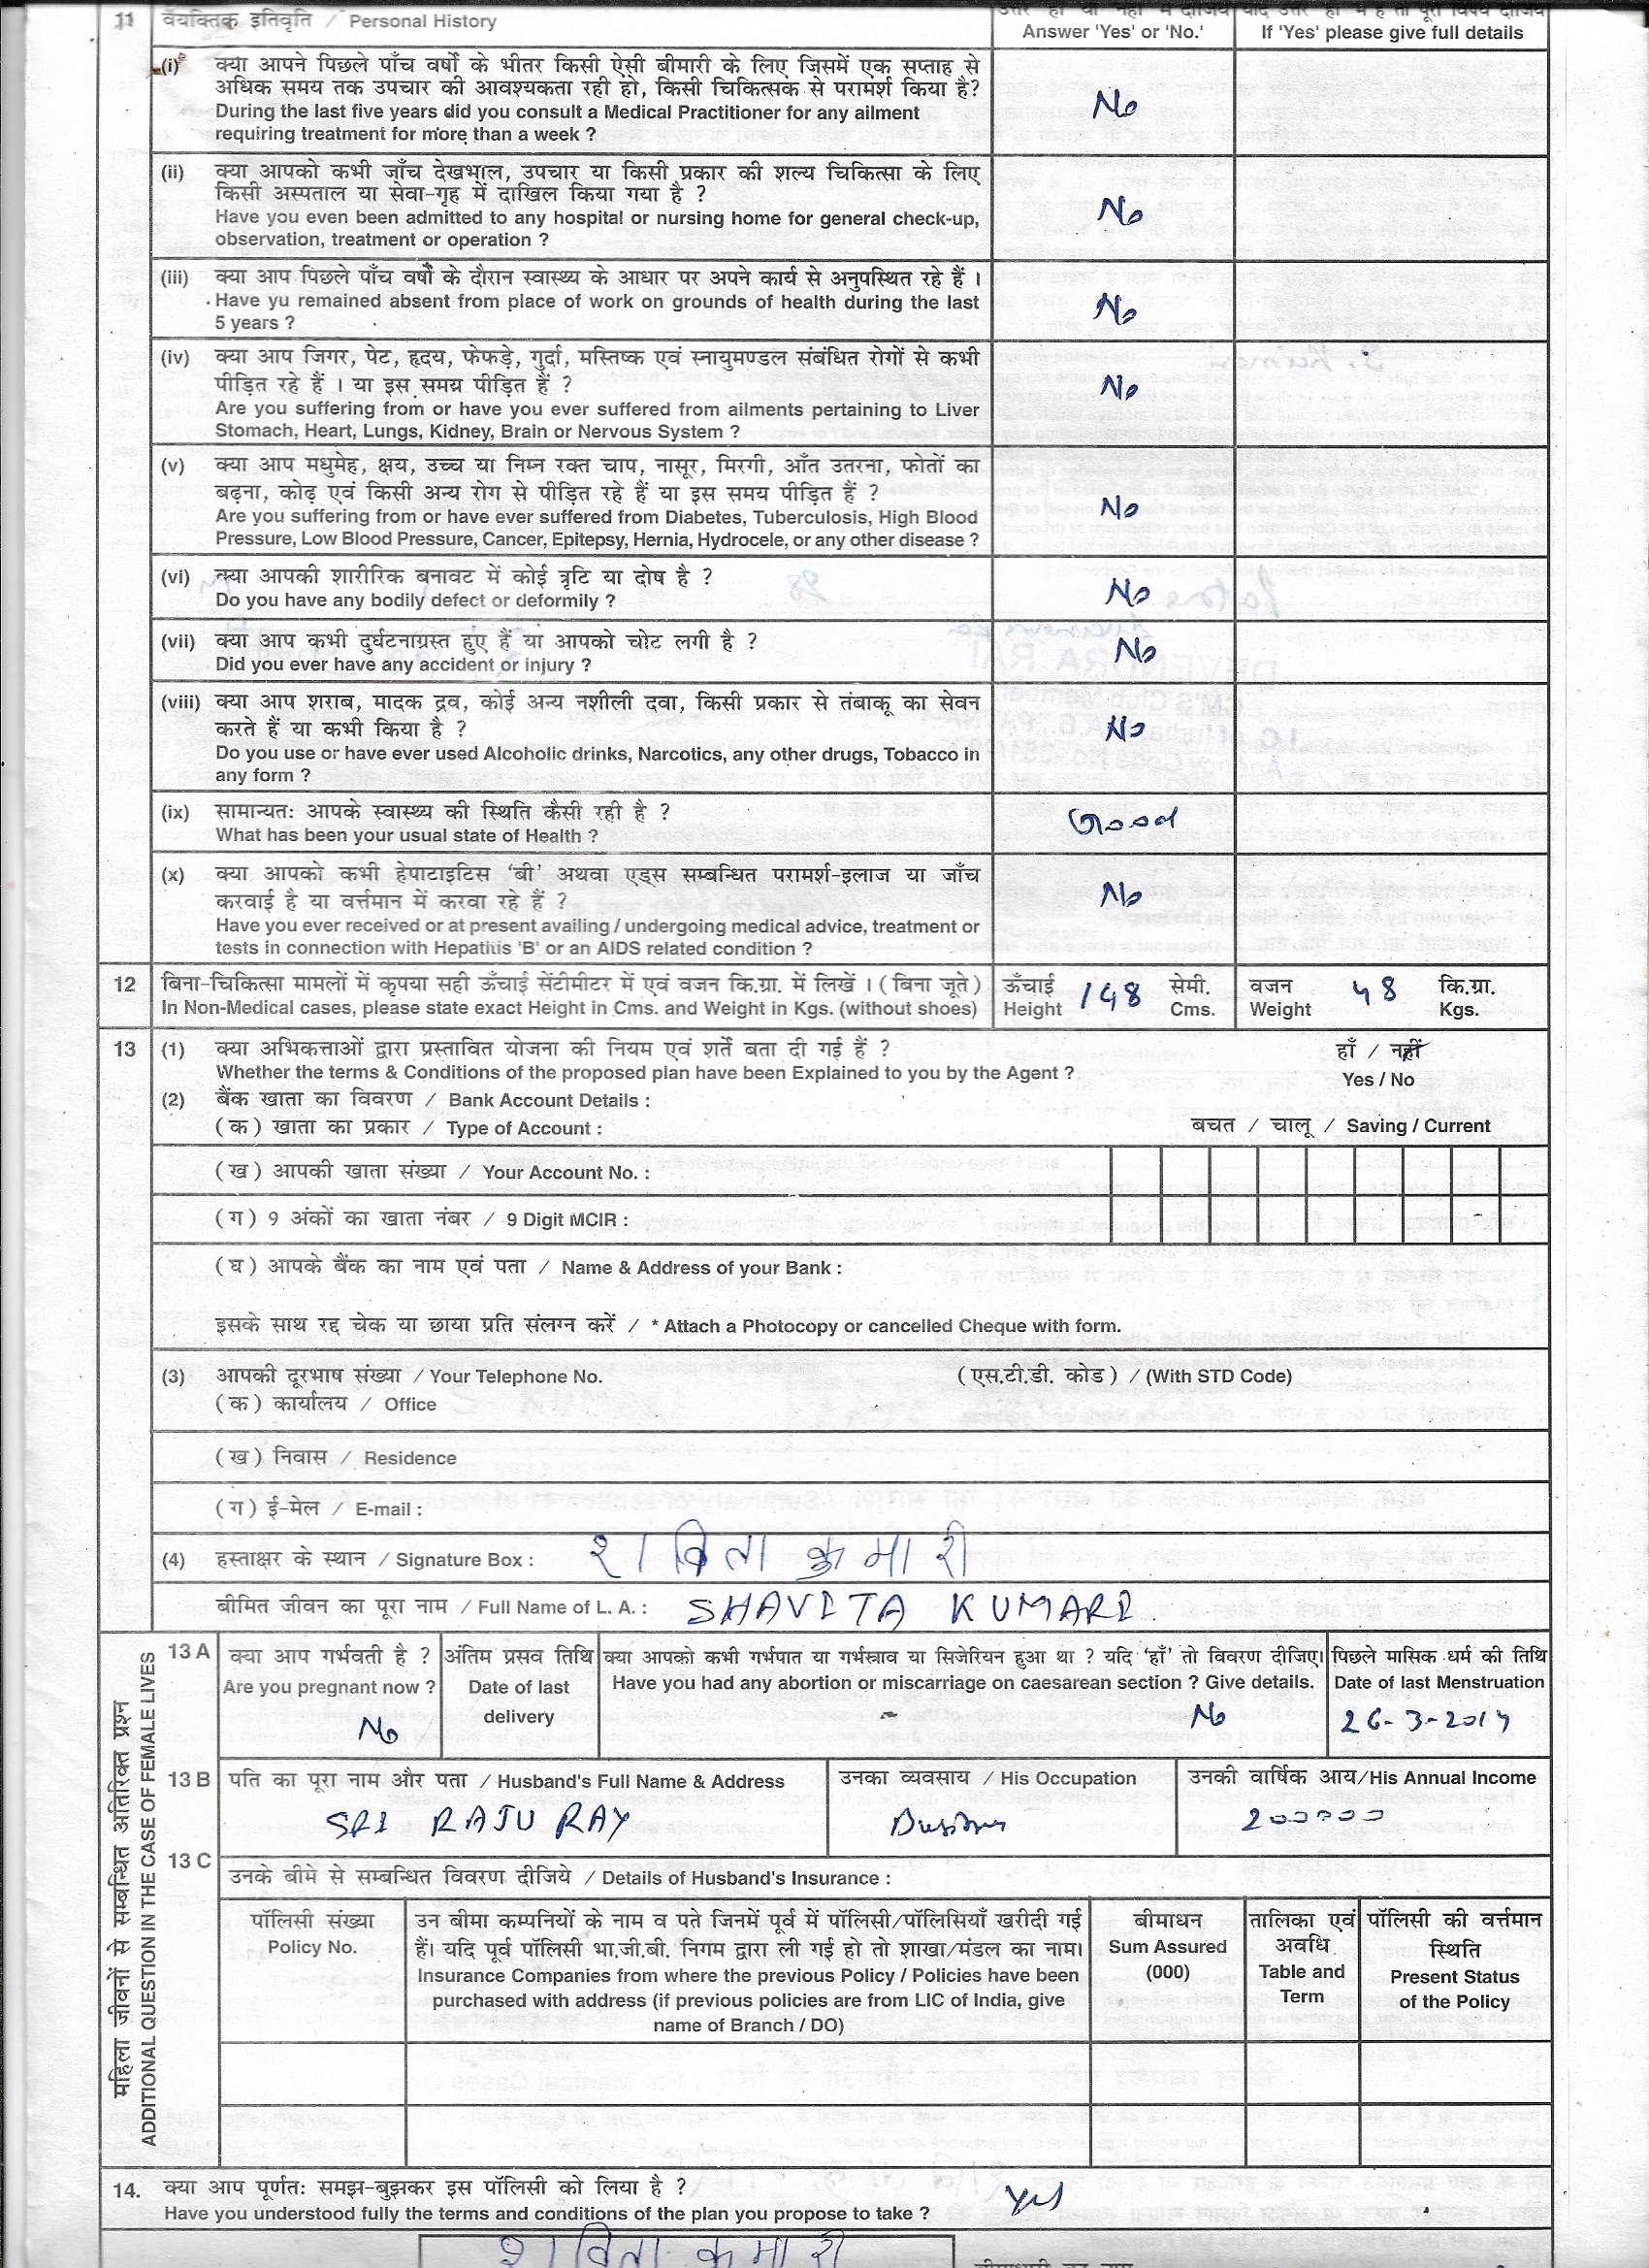 11 वैयक्तिक इतिवृति / Personal History
Answer 'Yes' or 'No.'
If 'Yes' please give full details
(i) क्या आपने पिछले पाँच वर्षों के भीतर किसी ऐसी बीमारी के लिए जिसमें एक सप्ताह से
अधिक समय तक उपचार की आवश्यकता रही हो, किसी चिकित्सक से परामर्श किया है?
During the last five years did you consult a Medical Practitioner for any ailment
requiring treatment for more than a week ?
No
(ii) क्या आपको कभी जाँच देखभाल, उपचार या किसी प्रकार की शल्य चिकित्सा के लिए
किसी अस्पताल या सेवा-गृह में दाखिल किया गया है ?
Have you even been admitted to any hospital or nursing home for general check-up,
observation, treatment or operation ?
No
(iii) क्या आप पिछले पाँच वर्षों के दौरान स्वास्थ्य के आधार पर अपने कार्य से अनुपस्थित रहे हैं ।
Have yu remained absent from place of work on grounds of health during the last
5 years ?
No
(iv) क्या आप जिगर, पेट, हृदय, फेफड़े, गुर्दा, मस्तिष्क एवं स्नायुमण्डल संबंधित रोगों से कभी
पीड़ित रहे हैं । या इस समय पीड़ित हैं ?
Are you suffering from or have you ever suffered from ailments pertaining to Liver
Stomach, Heart, Lungs, Kidney, Brain or Nervous System ?
No
(v) क्या आप मधुमेह, क्षय, उच्च या निम्न रक्त चाप, नासूर, मिरगी, आँत उतरना, फोतों का
बढ़ना, कोढ़ एवं किसी अन्य रोग से पीड़ित रहे हैं या इस समय पीड़ित हैं ?
Are you suffering from or have ever suffered from Diabetes, Tuberculosis, High Blood
Pressure, Low Blood Pressure, Cancer, Epitepsy, Hernia, Hydrocele, or any other disease ?
No
(vi) क्या आपकी शारीरिक बनावट में कोई त्रृटि या दोष है ?
Do you have any bodily defect or deformily ?
No
(vii) क्या आप कभी दुर्घटनाग्रस्त हुए हैं या आपको चोट लगी है ?
Did you ever have any accident or injury ?
No
(viii) क्या आप शराब, मादक द्रव, कोई अन्य नशीली दवा, किसी प्रकार से तंबाकू का सेवन
करते हैं या कभी किया है ?
Do you use or have ever used Alcoholic drinks, Narcotics, any other drugs, Tobacco in
any form ?
No
(ix) सामान्यतः आपके स्वास्थ्य की स्थिति कैसी रही है ?
What has been your usual state of Health ?
Good
(x) क्या आपको कभी हेपाटाइटिस 'बी' अथवा एड्स सम्बन्धित परामर्श-इलाज या जाँच
करवाई है या वर्त्तमान में करवा रहे हैं ?
Have you ever received or at present availing / undergoing medical advice, treatment or
tests in connection with Hepatius 'B' or an AIDS related condition ?
No
12 बिना-चिकित्सा मामलों में कृपया सही ऊँचाई सेंटीमीटर में एवं वजन कि.ग्रा. में लिखें । ( बिना जूते )
In Non-Medical cases, please state exact Height in Cms. and Weight in Kgs. (without shoes)
ऊँचाई 148 सेमी.
Height Cms.
वजन 48 कि.ग्रा.
Weight Kgs.
13 (1) क्या अभिकर्त्ताओं द्वारा प्रस्तावित योजना की नियम एवं शर्तें बता दी गई हैं ? हाँ / नहीं
Whether the terms & Conditions of the proposed plan have been Explained to you by the Agent ? Yes / No
(2) बैंक खाता का विवरण / Bank Account Details :
( क ) खाता का प्रकार / Type of Account : बचत / चालू / Saving / Current
( ख ) आपकी खाता संख्या / Your Account No. :
( ग ) 9 अंकों का खाता नंबर / 9 Digit MCIR :
( घ ) आपके बैंक का नाम एवं पता / Name & Address of your Bank :
इसके साथ रद्द चेक या छाया प्रति संलग्न करें / * Attach a Photocopy or cancelled Cheque with form.
(3) आपकी दूरभाष संख्या / Your Telephone No. ( एस.टी.डी. कोड ) / (With STD Code)
( क ) कार्यालय / Office
( ख ) निवास / Residence
( ग ) ई-मेल / E-mail :
(4) हस्ताक्षर के स्थान / Signature Box : शबिता कुमारी
बीमित जीवन का पूरा नाम / Full Name of L. A. : SHAVITA KUMARI
महिला जीवनों से सम्बन्धित अतिरिक्त प्रश्न
ADDITIONAL QUESTION IN THE CASE OF FEMALE LIVES
13 A क्या आप गर्भवती है ?
Are you pregnant now ?
No
अंतिम प्रसव तिथि
Date of last
delivery
क्या आपको कभी गर्भपात या गर्भस्त्राव या सिजेरियन हुआ था ? यदि 'हाँ' तो विवरण दीजिए।
Have you had any abortion or miscarriage on caesarean section ? Give details.
No
पिछले मासिक धर्म की तिथि
Date of last Menstruation
26-3-2014
13 B पति का पूरा नाम और पता / Husband's Full Name & Address
SRI RAJU RAY
उनका व्यवसाय / His Occupation
उनकी वार्षिक आय/His Annual Income
200000
13 C उनके बीमे से सम्बन्धित विवरण दीजिये / Details of Husband's Insurance :
पॉलिसी संख्या
Policy No.
उन बीमा कम्पनियों के नाम व पते जिनमें पूर्व में पॉलिसी/पॉलिसियाँ खरीदी गई
हैं। यदि पूर्व पॉलिसी भा.जी.बी. निगम द्वारा ली गई हो तो शाखा/मंडल का नाम।
Insurance Companies from where the previous Policy / Policies have been
purchased with address (if previous policies are from LIC of India, give
name of Branch / DO)
बीमाधन
Sum Assured
(000)
तालिका एवं
अवधि
Table and
Term
पॉलिसी की वर्त्तमान
स्थिति
Present Status
of the Policy
14. क्या आप पूर्णतः समझ-बुझकर इस पॉलिसी को लिया है ?
Have you understood fully the terms and conditions of the plan you propose to take ?
Yes
शबिता कुमारी